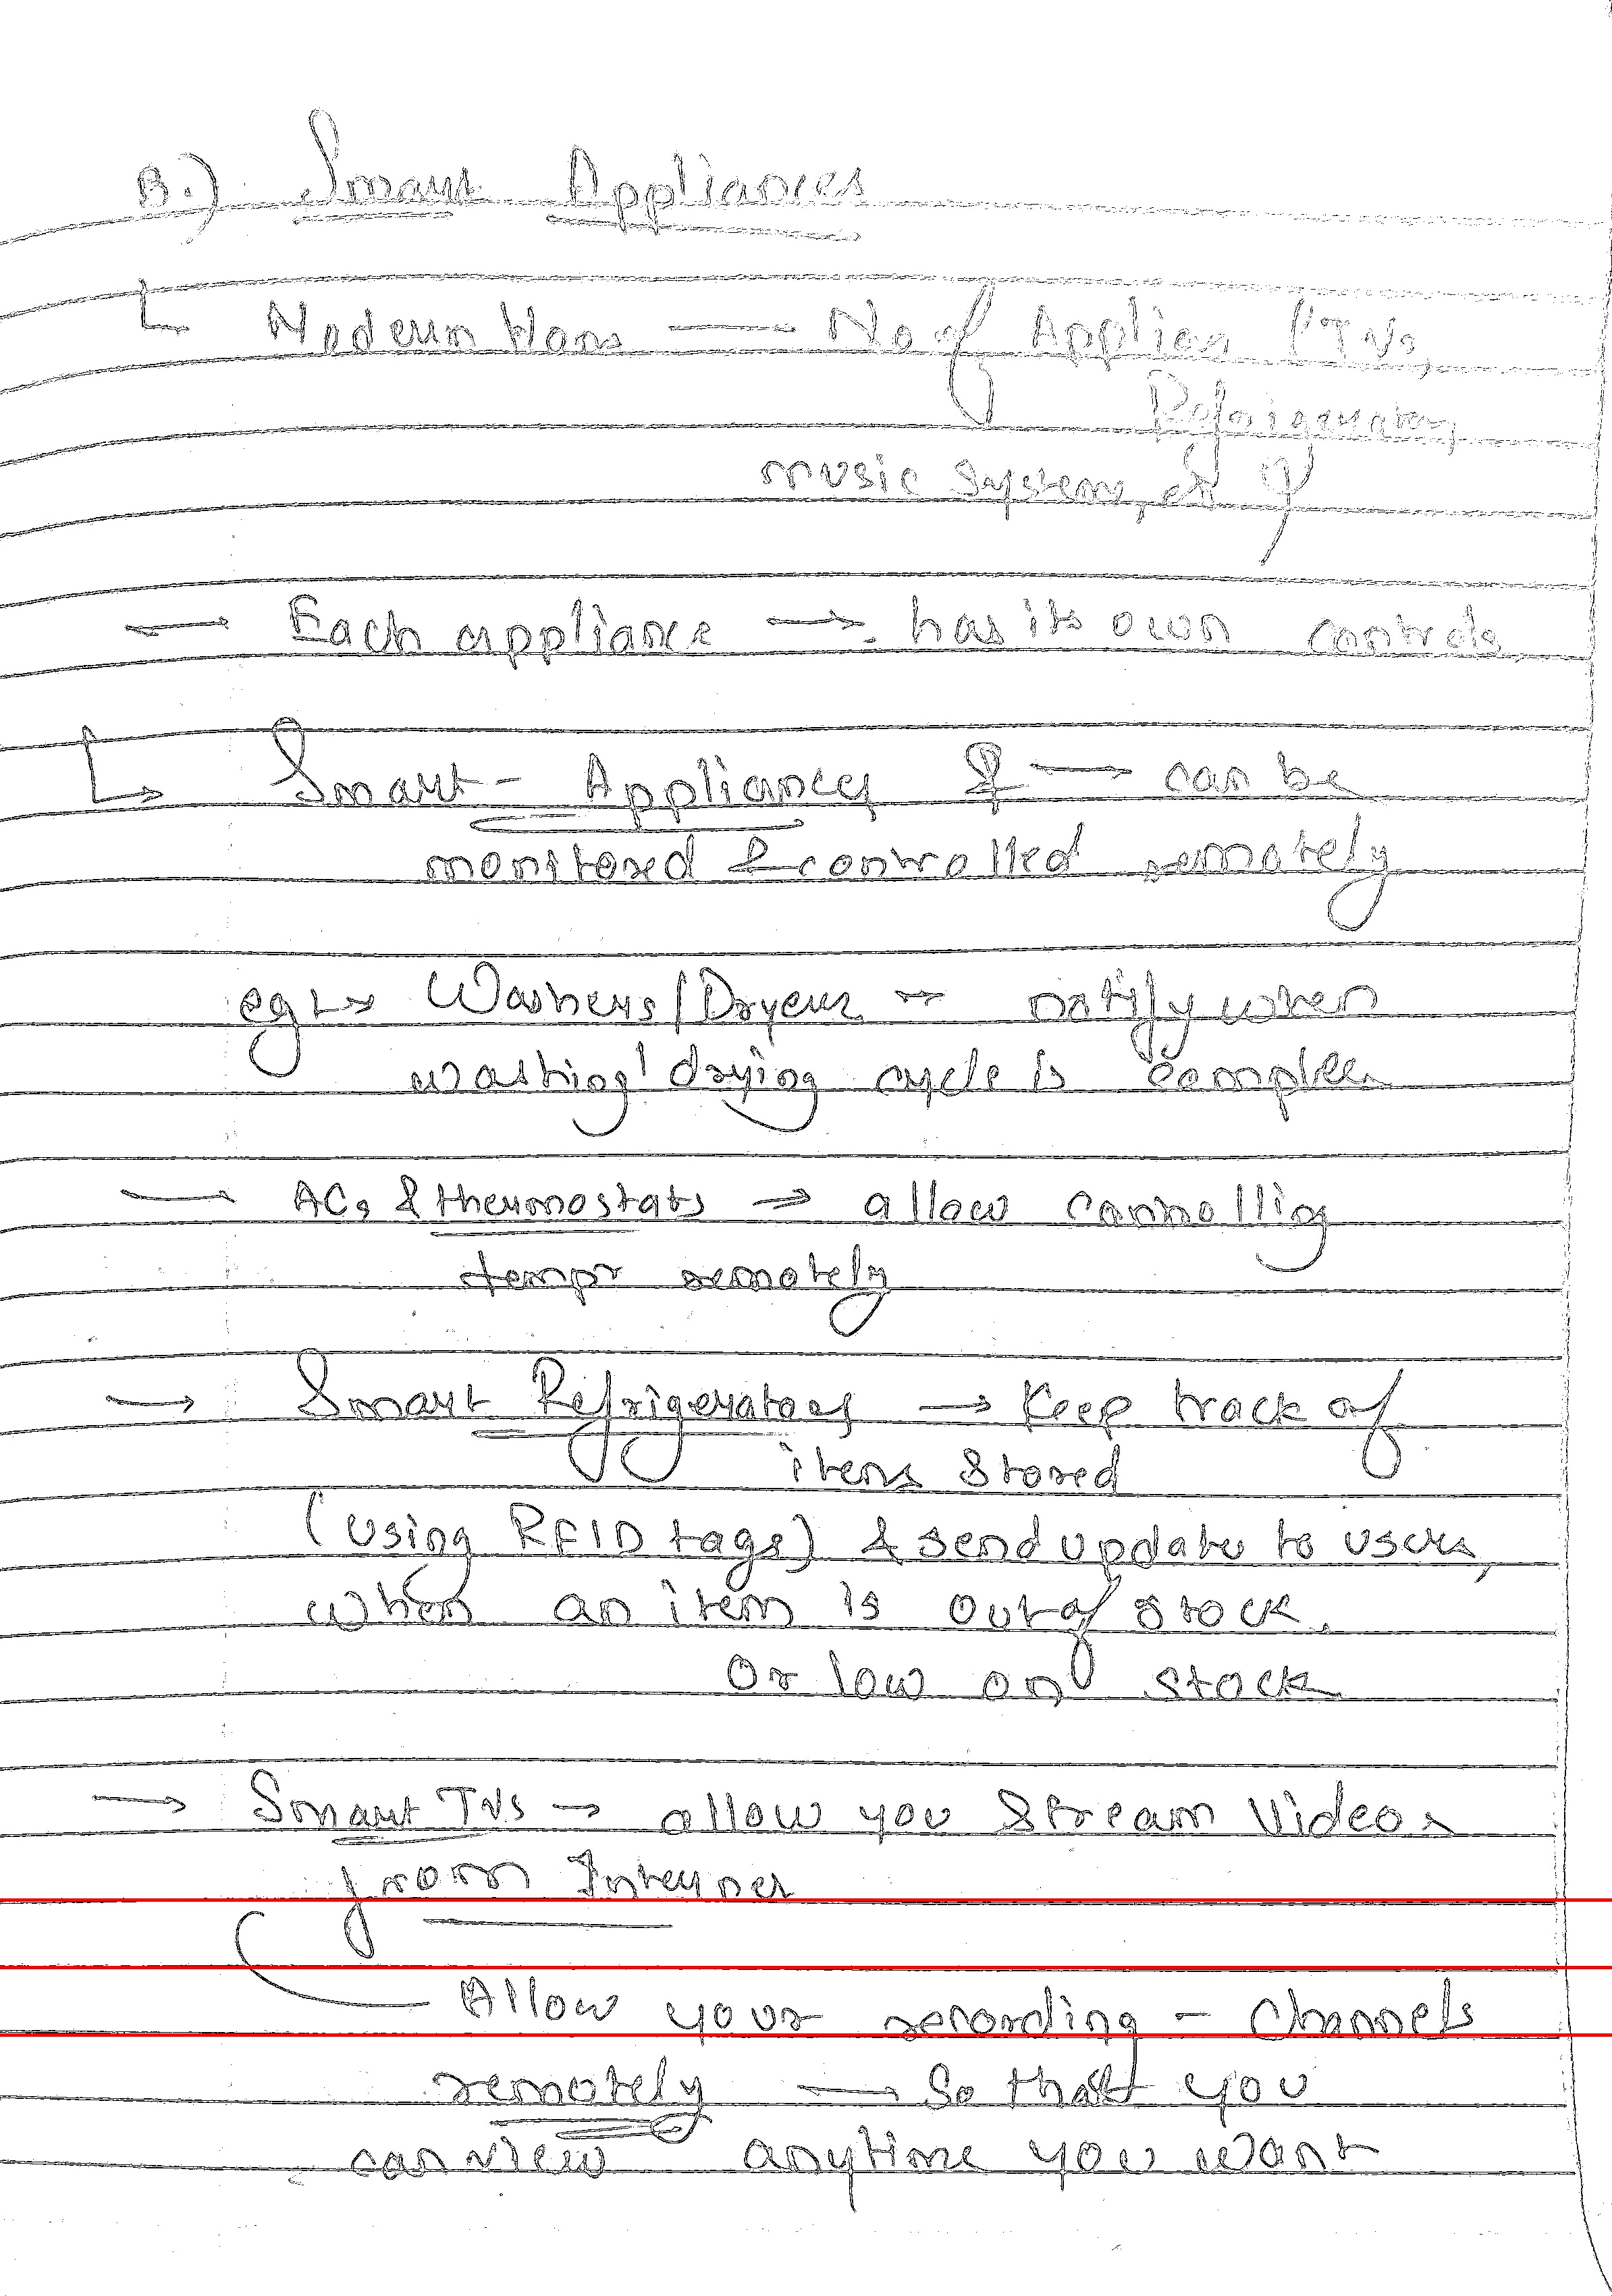 B.) Smart Appliances
↳ Modern Homs → No of Applien (for TVs,
Refrigerator,
music system, etc)
→ Each appliance → has its own controls
↳ Smart - Appliances → can be
monitored & controlled remotely
eg ↳ Washers/Dryers → notify when
washing/drying cycle is complete
→ ACs & thermostats ⇒ allow controlling
tempr remotely
→ Smart Refrigerators → Keep track of
items stored
(using RFID tags) & send update to users,
when an item is out of stock.
Or low on stock
→ Smart TVs → allow you stream Videos
from Internet
Allow your recording - Channels
remotely → So that you
can view anytime you want